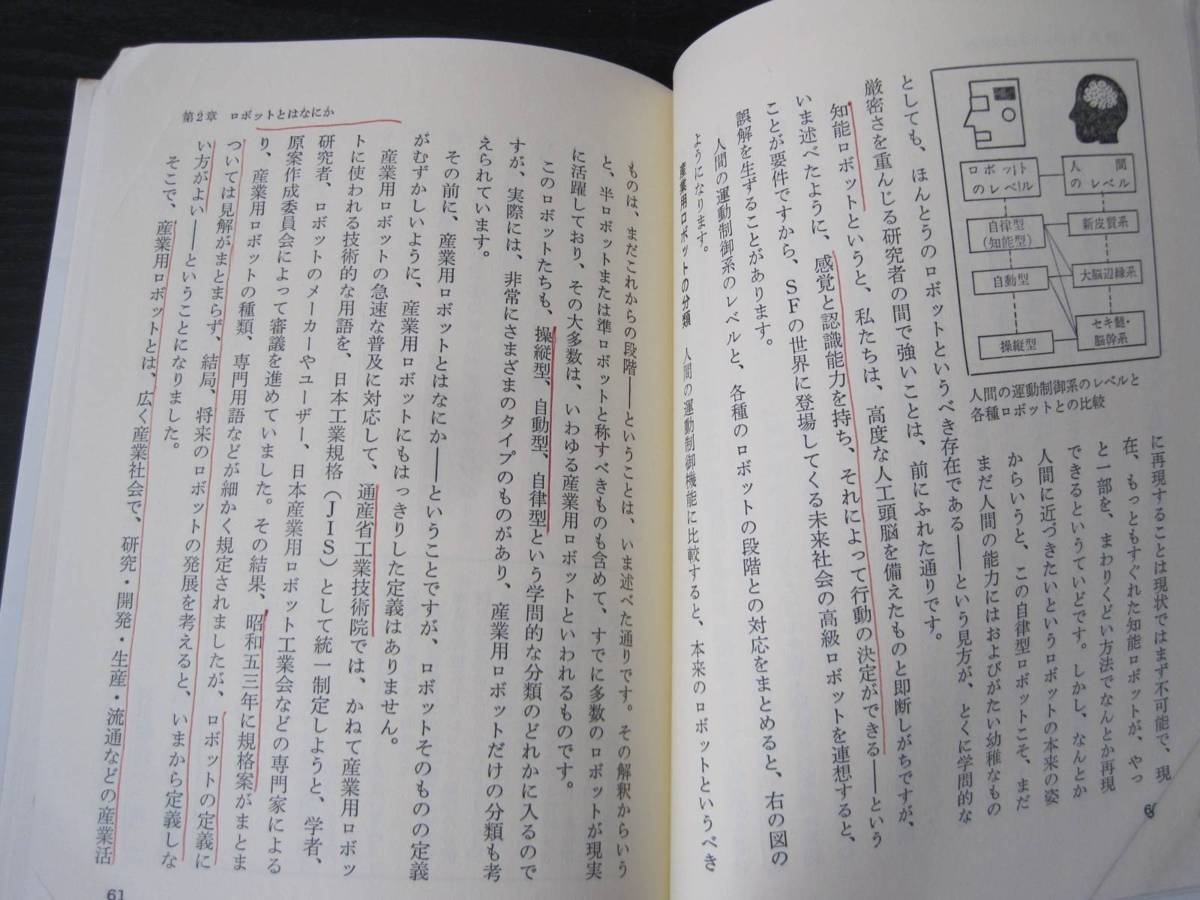 人間のレベル
ロボットのレベル
新皮質系
大脳辺縁系
セキ髄・脳幹系
自律型（知能型）
自動型
操縦型
人間の運動制御系のレベルと
各種ロボットとの比較
に再現することは現状ではまず不可能で、現
在、もっともすぐれた知能ロボットが、やっ
と一部を、まわりくどい方法でなんとか再現
できるというていどです。しかし、なんとか
人間に近づきたいというロボットの本来の姿
からいうと、この自律型ロボットこそ、まだ
まだ人間の能力にはおよびがたい幼稚なもの
としても、ほんとうのロボットというべき存在である――という見方が、とくに学問的な
厳密さを重んじる研究者の間で強いことは、前にふれた通りです。
知能ロボットというと、私たちは、高度な人工頭脳を備えたものと即断しがちですが、
いま述べたように、感覚と認識能力を持ち、それによって行動の決定ができる――という
ことが要件ですから、SFの世界に登場してくる未来社会の高級ロボットを連想すると、
誤解を生ずることがあります。
人間の運動制御系のレベルと、各種のロボットの段階との対応をまとめると、右の図の
ようになります。
産業用ロボットの分類　人間の運動制御機能に比較すると、本来のロボットというべき
6
第2章　ロボットとはなにか
ものは、まだこれからの段階――ということは、いま述べた通りです。その解釈からいう
と、半ロボットまたは準ロボットと称すべきものも含めて、すでに多数のロボットが現実
に活躍しており、その大多数は、いわゆる産業用ロボットといわれるものです。
このロボットたちも、操縦型、自動型、自律型という学問的な分類のどれかに入るので
すが、実際には、非常にさまざまのタイプのものがあり、産業用ロボットだけの分類も考
えられています。
その前に、産業用ロボットとはなにか――ということですが、ロボットそのものの定義
がむずかしいように、産業用ロボットにもはっきりした定義はありません。
産業用ロボットの急速な普及に対応して、通産省工業技術院では、かねて産業用ロボッ
トに使われる技術的な用語を、日本工業規格（JIS）として統一制定しようと、学者、
研究者、ロボットのメーカーやユーザー、日本産業用ロボット工業会などの専門家による
原案作成委員会によって審議を進めていました。その結果、昭和五三年に規格案がまとま
り、産業用ロボットの種類、専門用語などが細かく規定されましたが、ロボットの定義に
ついては見解がまとまらず、結局、将来のロボットの発展を考えると、いまから定義しな
い方がよい――ということになりました。
そこで、産業用ロボットとは、広く産業社会で、研究・開発・生産・流通などの産業活
61